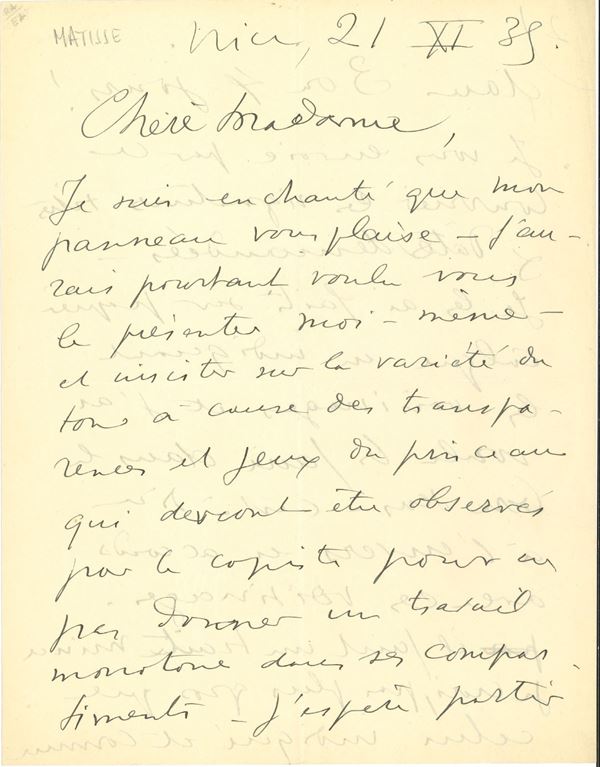 MATISSE
Nice, 21 XI 35.
Chère Madame,
Je suis enchanté que mon
panneau vous plaise – j'au-
rais pourtant voulu vous
le présenter moi-même –
et insister sur la variété du
ton à cause des transpa-
rences et jeux du pinceau
qui devront être observés
par le copiste pour en
pas donner un travail
monotone dans ses compar
timents – J'espère partir